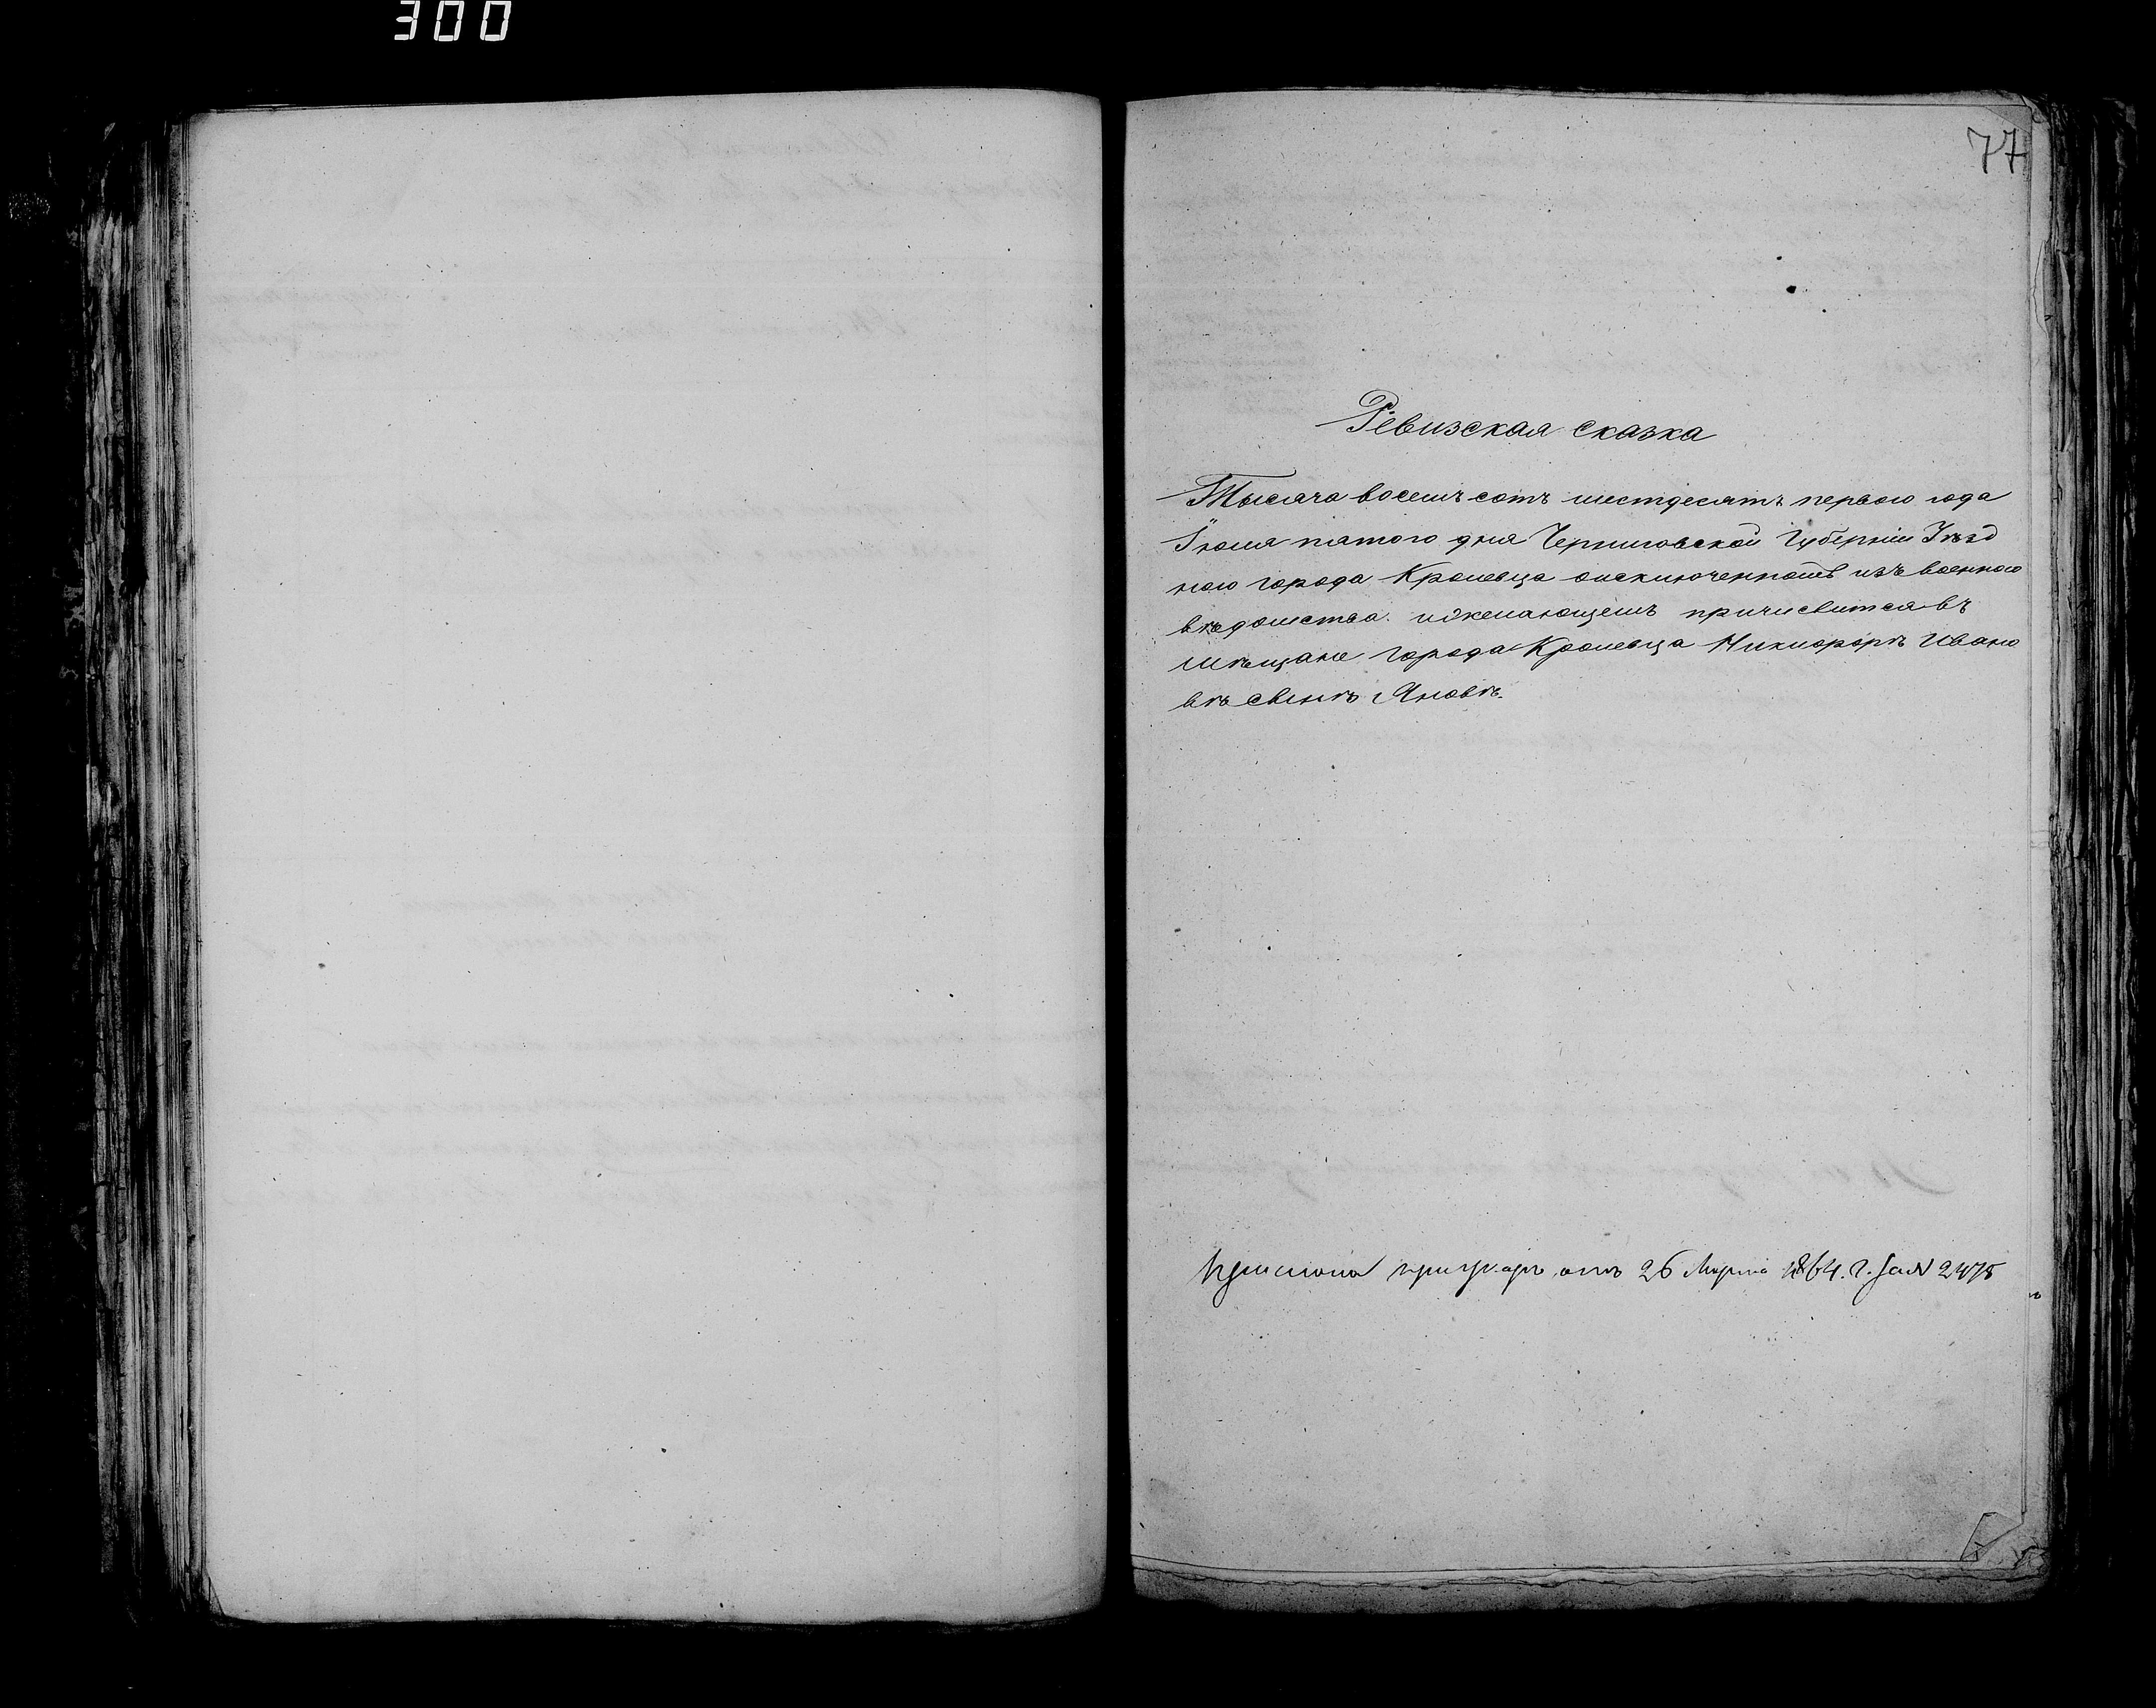 300
77
Ревизская сказка
Тысяча восемъ сотъ шестдесятъ перваго года
Іюля пятого дня Черниговской Губерніи Уѣзд
ного города Кролевца оисключенномъ изъ военного
вѣдомства ижелающемъ причислится въ
мѣщане города Кролевца Никифорѣ Ивано
вѣ сынѣ Яновѣ.
при отъ 26 Марта 1864. г. за № 2475